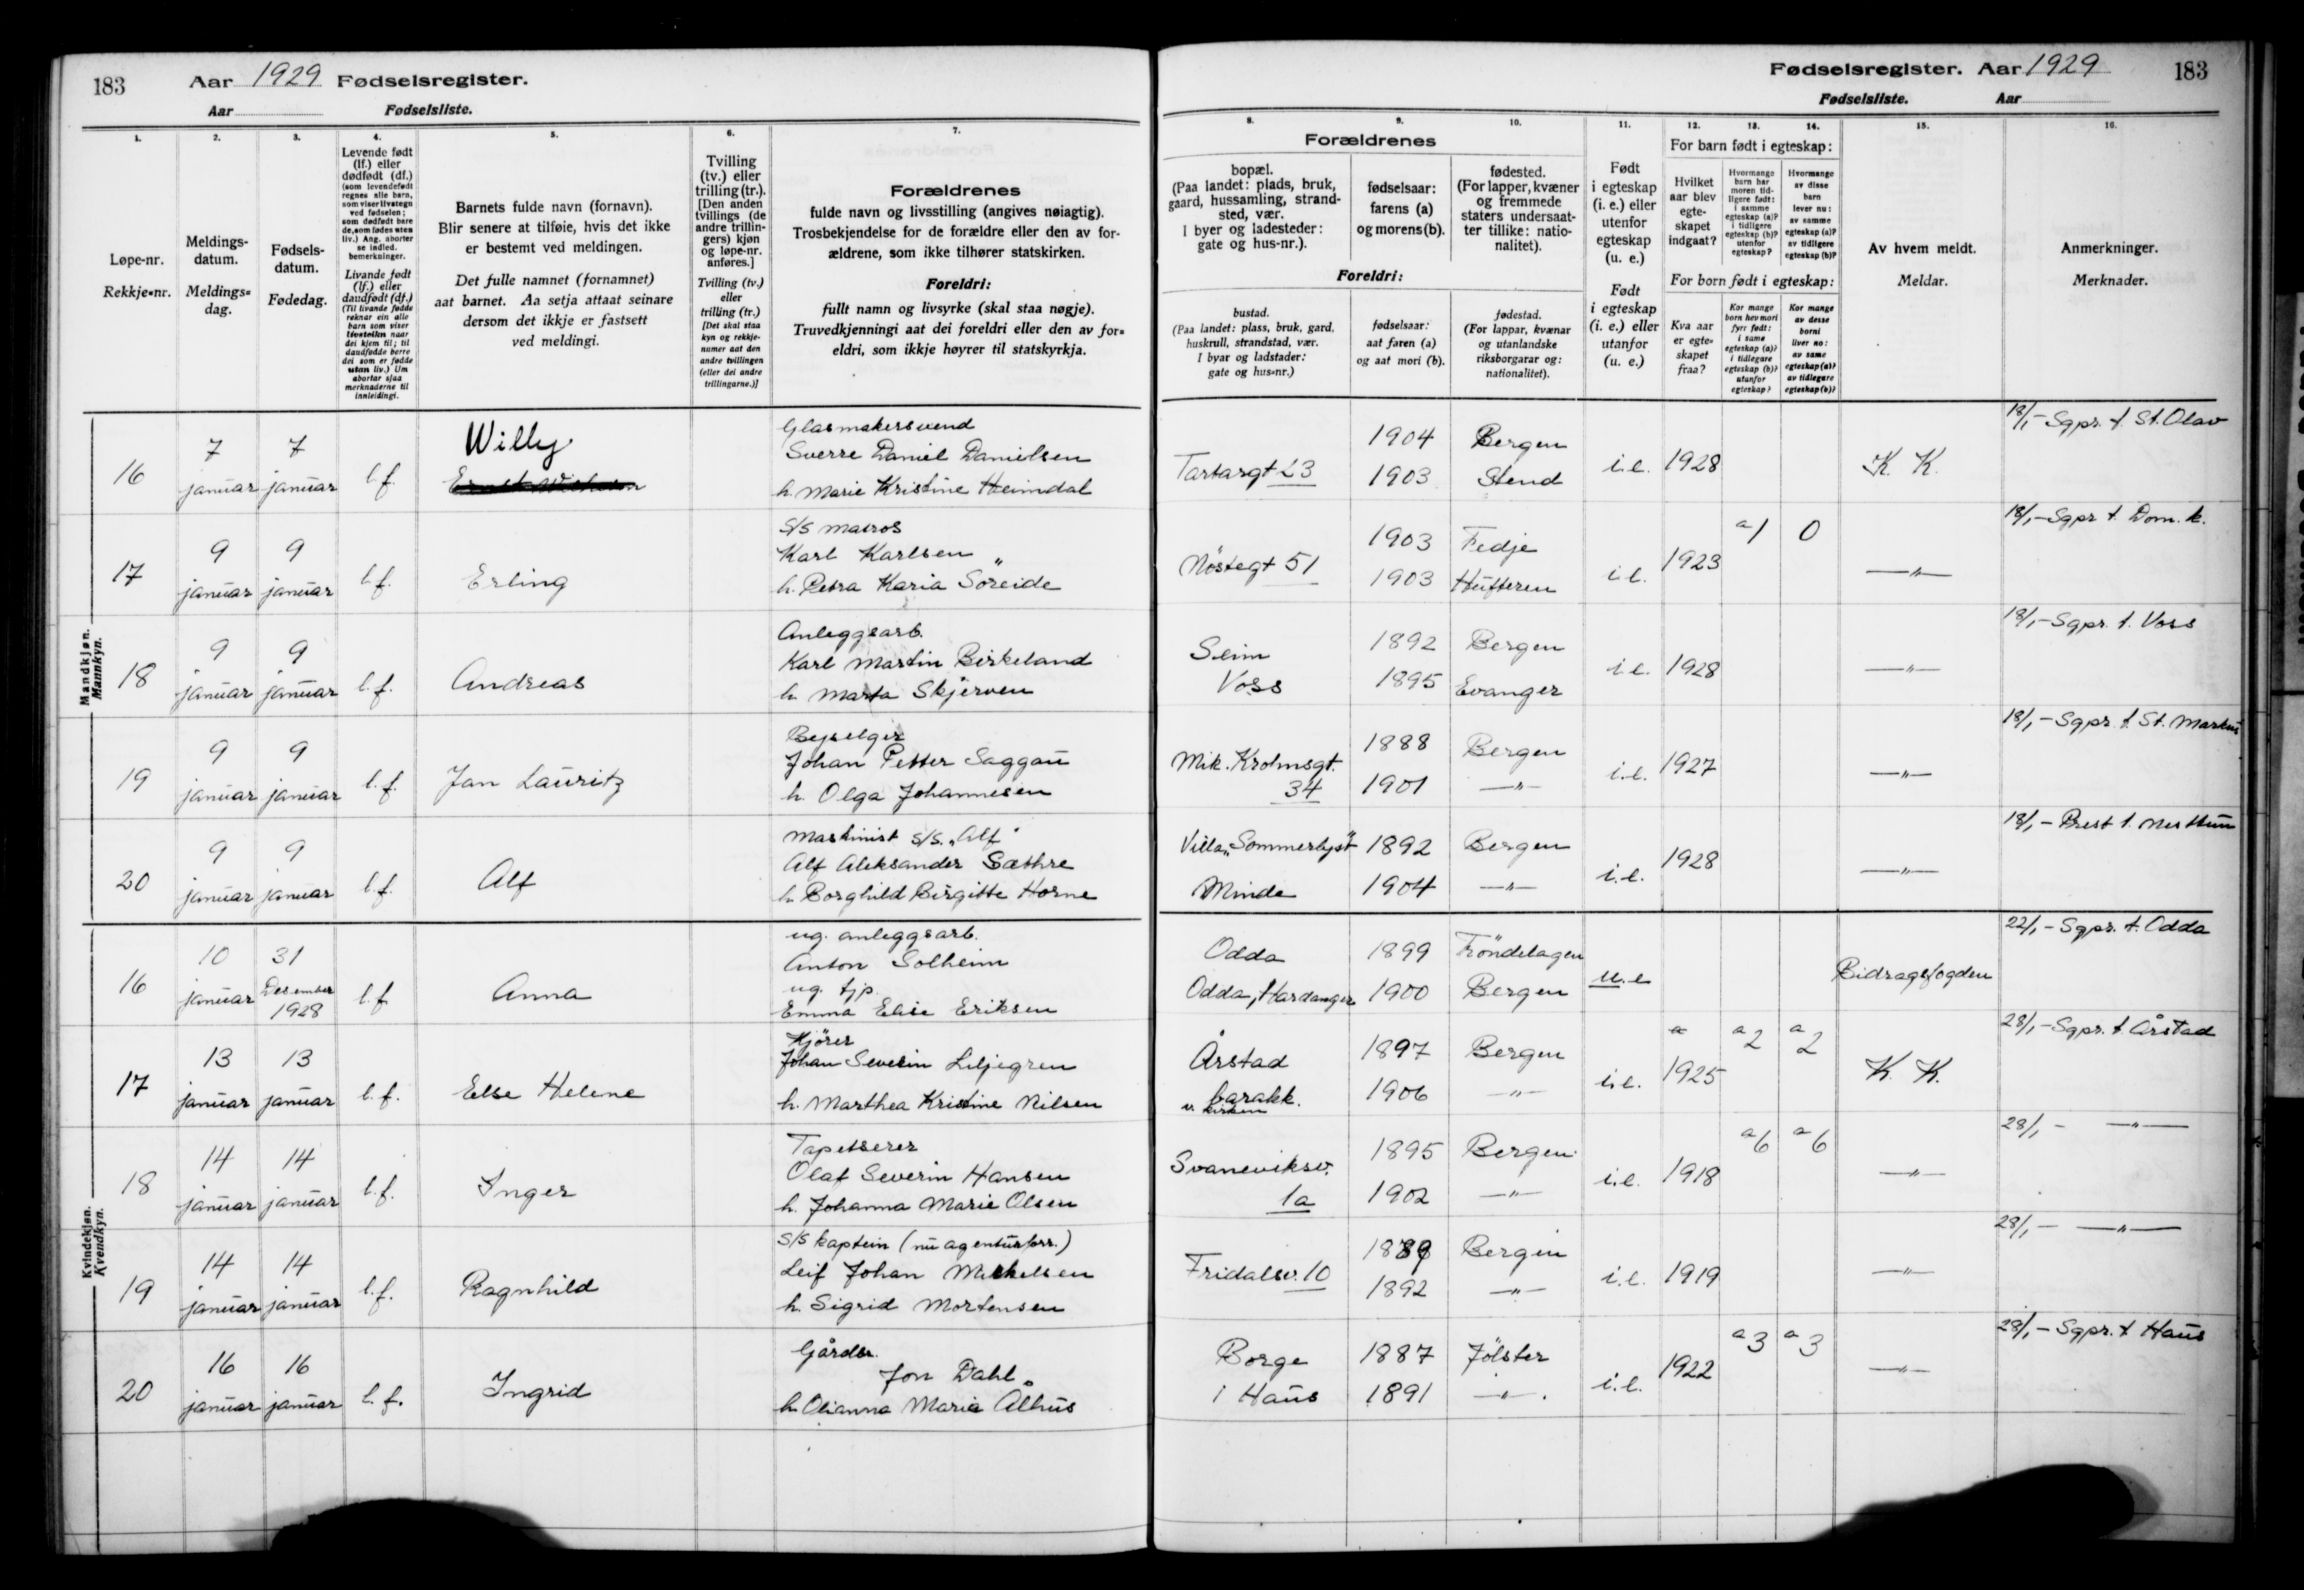 183 Aar 1929 Fødselsregister.
Aar Fødselsliste.
Fødselsregister. Aar 1929 183
Fødselsliste. Aar
1. 2. 3. 4. 5. 6. 7.
Løpe-nr.
Rekkje-nr.
Meldings-
datum.
Meldings-
dag.
Fødsels-
datum.
Fødedag.
Levende født
(lf.) eller
dødfødt (df.)
(som levendefødt
regnes alle barn,
som viser livstegn
ved fødselen;
som dødfødt bare
de, som fødes uten
liv.) Ang. aborter
se indled.
bemerkninger.
Livande født
(lf.) eller
daudfødt (df.)
(Til livande fødde
reknar ein alle
barn som viser
livsteikn naar
dei kjem til; til
daudfødde berre
dei som er fødde
utan liv.) Um
abortar sjaa
merknaderne til
innleidingi.
Barnets fulde navn (fornavn).
Blir senere at tilføie, hvis det ikke
er bestemt ved meldingen.
Det fulle namnet (fornamnet)
aat barnet. Aa setja attaat seinare
dersom det ikkje er fastsett
ved meldingi.
Tvilling
(tv.) eller
trilling (tr.).
[Den anden
tvillings (de
andre trillin-
gers) kjøn
og løpe-nr.
anføres.]
Tvilling (tv.)
eller
trilling (tr.)
[Det skal staa
kyn og rekkje-
numer aat den
andre tvillingen
(eller dei andre
trillingarne.)]
Forældrenes
fulde navn og livsstilling (angives nøiagtig).
Trosbekjendelse for de forældre eller den av for-
ældrene, som ikke tilhører statskirken.
Foreldri:
fullt namn og livsyrke (skal staa nøgje).
Truvedkjenningi aat dei foreldri eller den av for-
eldri, som ikkje høyrer til statskyrkja.
8. 9. 10. 11. 12. 13. 14. 15. 16.
Forældrenes
bopæl.
(Paa landet: plads, bruk,
gaard, hussamling, strand-
sted, vær.
I byer og ladesteder:
gate og hus-nr.).
fødselsaar:
farens (a)
og morens (b).
fødested.
(For lapper, kvæner
og fremmede
staters undersaat-
ter tillike: natio-
nalitet).
Foreldri:
bustad.
(Paa landet: plass, bruk, gard,
huskrull, strandstad, vær.
I byar og ladstader:
gate og hus-nr.)
fødselsaar:
aat faren (a)
og aat mori (b).
fødestad.
(For lappar, kvænar
og utanlandske
riksborgarar og:
nationalitet).
Født
i egteskap
(i. e.) eller
utenfor
egteskap
(u. e.)
Født
i egteskap
(i. e.) eller
utanfor
(u. e.)
For barn født i egteskap:
Hvilket
aar blev
egte-
skapet
indgaat?
Hvormange
barn har
moren tid-
ligere født:
i samme
egteskap (a)?
i tidligere
egteskap (b)?
utenfor
egteskap?
Hvormange
av disse
barn
lever nu:
av samme
egteskap (a)?
av tidligere
egteskap (b)?
For born født i egteskap:
Kva aar
er egte-
skapet
fraa?
Kor mange
born hev mori
fyrr født:
i same
egteskap (a)?
i tidlegare
egteskap (b)?
utanfor
egteskap?
Kor mange
av desse
borni
liver no:
av same
egteskap (a)?
av tidlegare
egteskap (b)?
Av hvem meldt.
Meldar.
Anmerkninger.
Merknader.
Mandkjøn.
Mannkyn.
16 7 januar 7 januar l.f. Willy
Glasmakersvend
Sverre Daniel Danielsen
h. Marie Kristine Heimdal
Tartargt 23 1904 Bergen
1903 Stend
i.e. 1928 K K. 18/1 - Sgpr. t. St. Olav
17 9 januar 9 januar l.f. Erling
S/S matros
Karl Karlsen
h. Petra Karia Söreide
Nöstegt 51 1903 Fedje
1903 Hufteren
i.e. 1923 a 1 0 —„— 18/1 - Sgpr t. Dom. k.
18 9 januar 9 januar l.f. Andreas
Anleggsarb.
Karl Martin Birkeland
h. Marta Skjerven
Seim 1892 Bergen
Voss 1895 Evanger
i.e. 1928 —„— 18/1 - Sgpr. t. Voss
19 9 januar 9 januar l.f. Jan Lauritz
Johan Petter Saggau
h. Olga Johannesen
Mik. Krohnsgt. 1888 Bergen
34 1901 —„—
i.e. 1927 —„— 18/1 - Sgpr. t St. Markus
20 9 januar 9 januar l.f. Alf
Maskinist S/S. „Alf"
Alf Aleksander Sæthre
h. Borghild Birgitte Horne
Villa „Sommerlyst" 1892 Bergen
Minde 1904 —„—
i.e. 1928 —„— 18/1 - Prest t. Nesttun
Kvindekjøn.
Kvendkyn.
16 10 januar 31 Desember 1928 l.f. Anna
ug. anleggsarb.
Anton Solheim
ug. tjp.
Emma Elise Eriksen
Odda 1899 Tröndelagen
Odda, Hardanger 1900 Bergen
u.e Bidragsfogden 22/1 - Sgpr. t. Odda
17 13 januar 13 januar l.f. Else Helene
Kjörer
Johan Severin Liljegren
h. Marthea Kristine Nilsen
Årstad 1897 Bergen
barakk. 1906 —„—
v. kirken
i.e. 1925 a 2 a 2 K. K. 28/1 - Sgpr. t. Årstad
18 14 januar 14 januar l.f. Inger
Tapetserer
Olaf Severin Hansen
h. Johanna Marie Olsen
Svaneviksv. 1895 Bergen
1a 1902 —„—
i.e. 1918 a 6 a 6 —„— 28/1 - —„—
19 14 januar 14 januar l.f. Ragnhild
S/S kaptein (nu agenturforr.)
Leif Johan Mickelsen
h. Sigrid Mortensen
Fridalsv. 10 Bergen
1892 —„—
i.e. 1919 —„— 28/1 - —„—
20 16 januar 16 januar l.f. Ingrid
Gårdbr.
Jon Dahl
h. Olianna Maria Ålhus
Borge 1887 Jölster
i Haus 1891 —„—
i.e. 1922 a 3 a 3 —„— 28/1 - Sgpr. t Haus